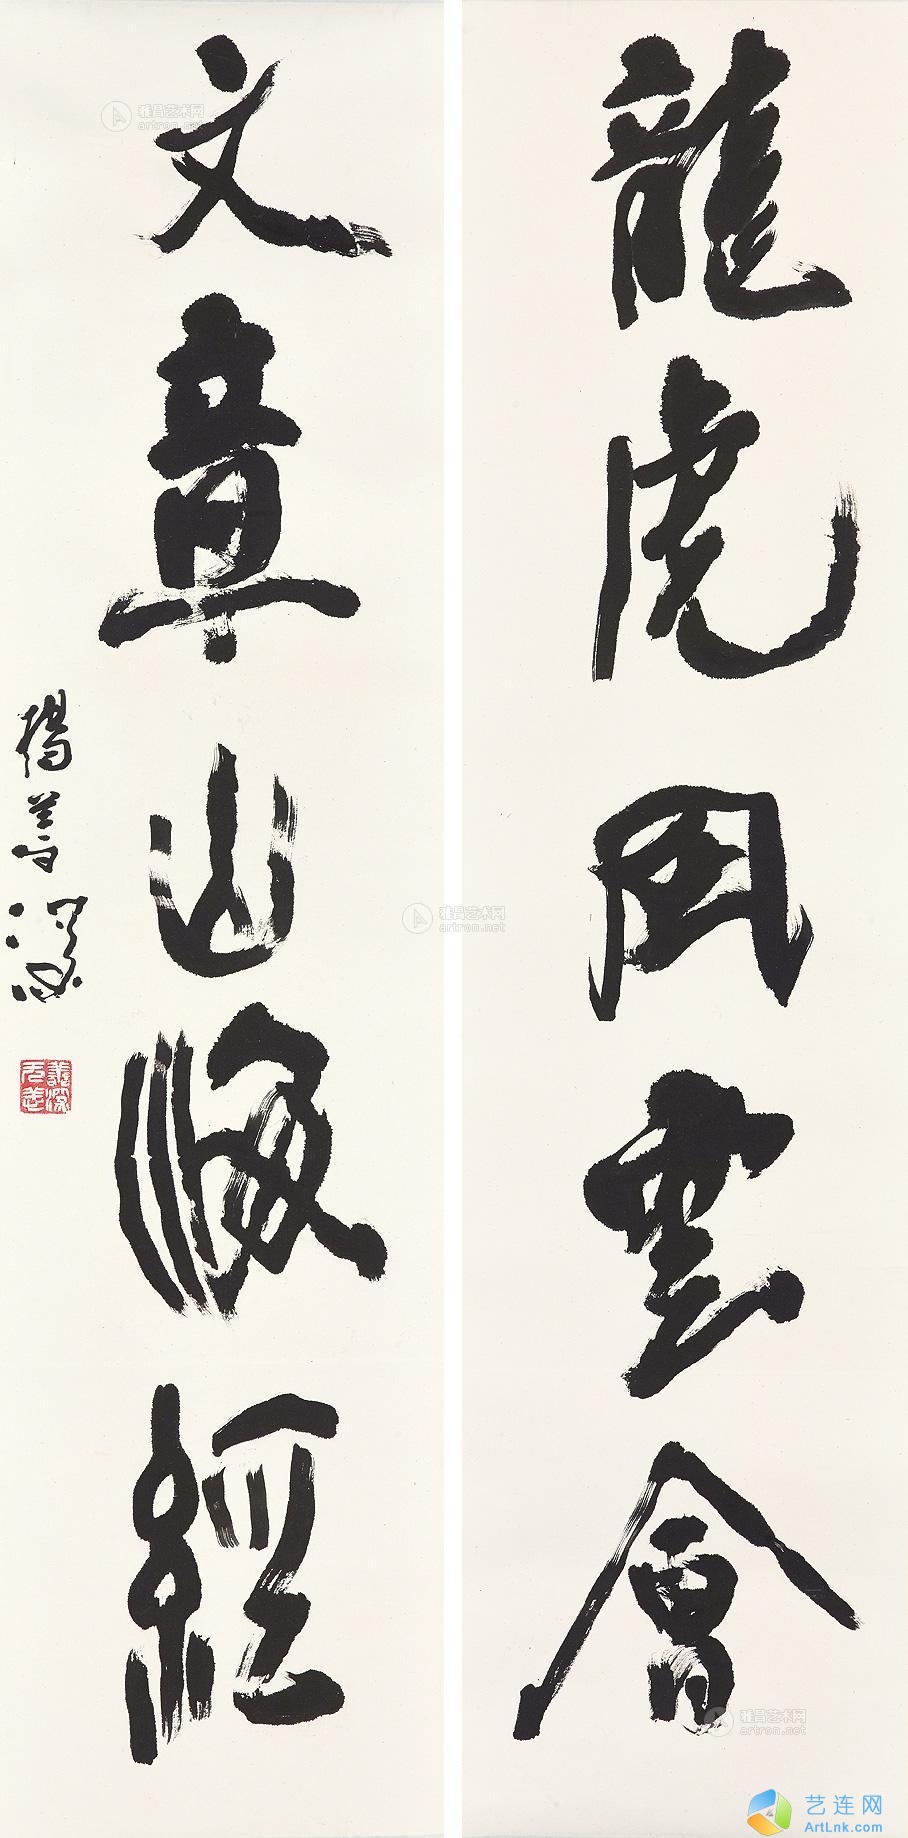 龍虎風雲會
文章山海經
楊善深
雅昌艺术网
artron.net
雅昌艺术网
artron.net
雅昌艺术网
artron.net
艺连网
ArtLnk.com